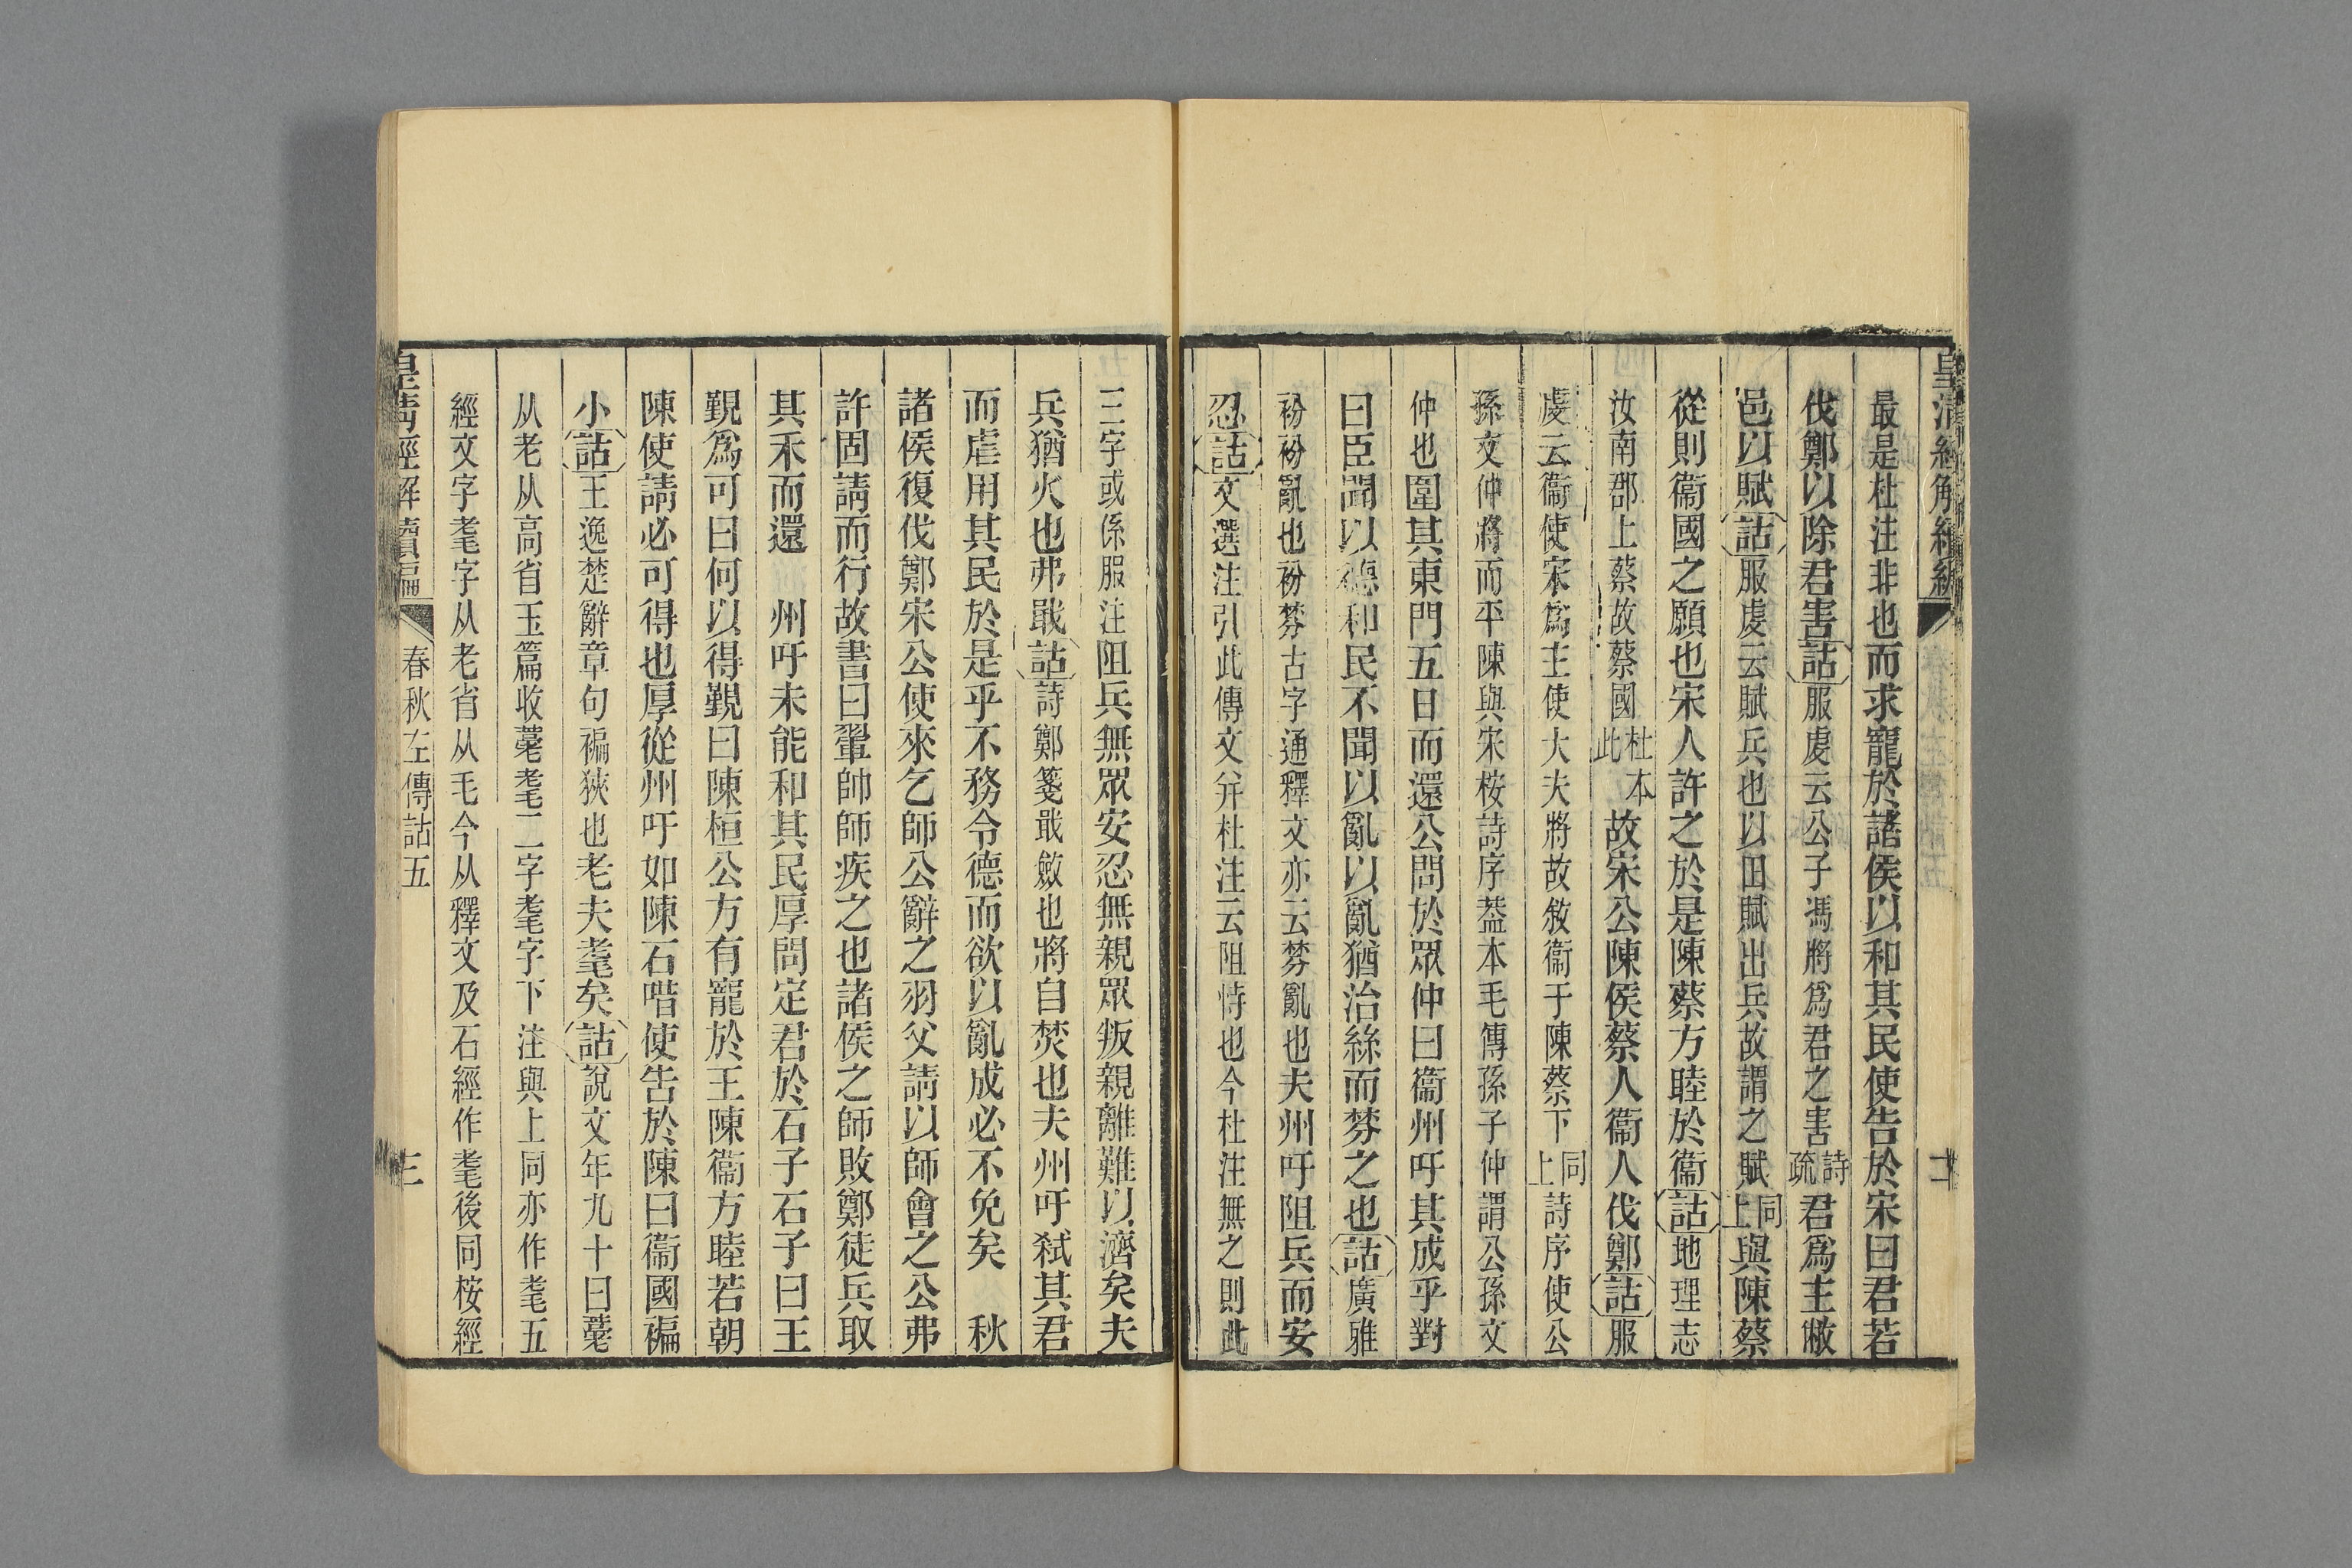 皇清經解續編
最是杜注非也而求寵於諸侯以和其民使告於宋曰君若
伐鄭以除君害詁服虔云公子馮將爲君之害詩疏君爲主敝
邑以賦詁服虔云賦兵也以田賦出兵故謂之賦同上與陳蔡
從則衞國之願也宋人許之於是陳蔡方睦於衞詁地理志
汝南郡上蔡故蔡國杜本此故宋公陳侯蔡人衞人伐鄭詁服
虔云衞使宋爲主使大夫將故敘衞于陳蔡下同上詩序使公
孫文仲將而平陳與宋桉詩序葢本毛傳孫子仲謂公孫文
仲也圍其東門五日而還公問於眾仲曰衞州吁其成乎對
曰臣聞以德和民不聞以亂以亂猶治絲而棼之也詁廣雅
衯衯亂也衯棼古字通釋文亦云棼亂也夫州吁阻兵而安
忍詁文選注引此傳文并杜注云阻恃也今杜注無之則此
三字或係服注阻兵無眾安忍無親眾叛親離難以濟矣夫
兵猶火也弗戢詁詩鄭箋戢斂也將自焚也夫州吁弒其君
而虐用其民於是乎不務令德而欲以亂成必不免矣　秋
諸侯復伐鄭宋公使來乞師公辭之羽父請以師會之公弗
許固請而行故書曰翬帥師疾之也諸侯之師敗鄭徒兵取
其禾而還　州吁未能和其民厚問定君於石子石子曰王
覲爲可曰何以得覲曰陳桓公方有寵於王陳衞方睦若朝
陳使請必可得也厚從州吁如陳石碏使告於陳曰衞國褊
小詁王逸楚辭章句褊狹也老夫耄矣詁說文年九十曰薹
从老从高省玉篇收薹耄二字耄字下注與上同亦作耄五
經文字耄字从老省从毛今从釋文及石經作耄後同桉經
皇清經解續編　春秋左傳詁五　三